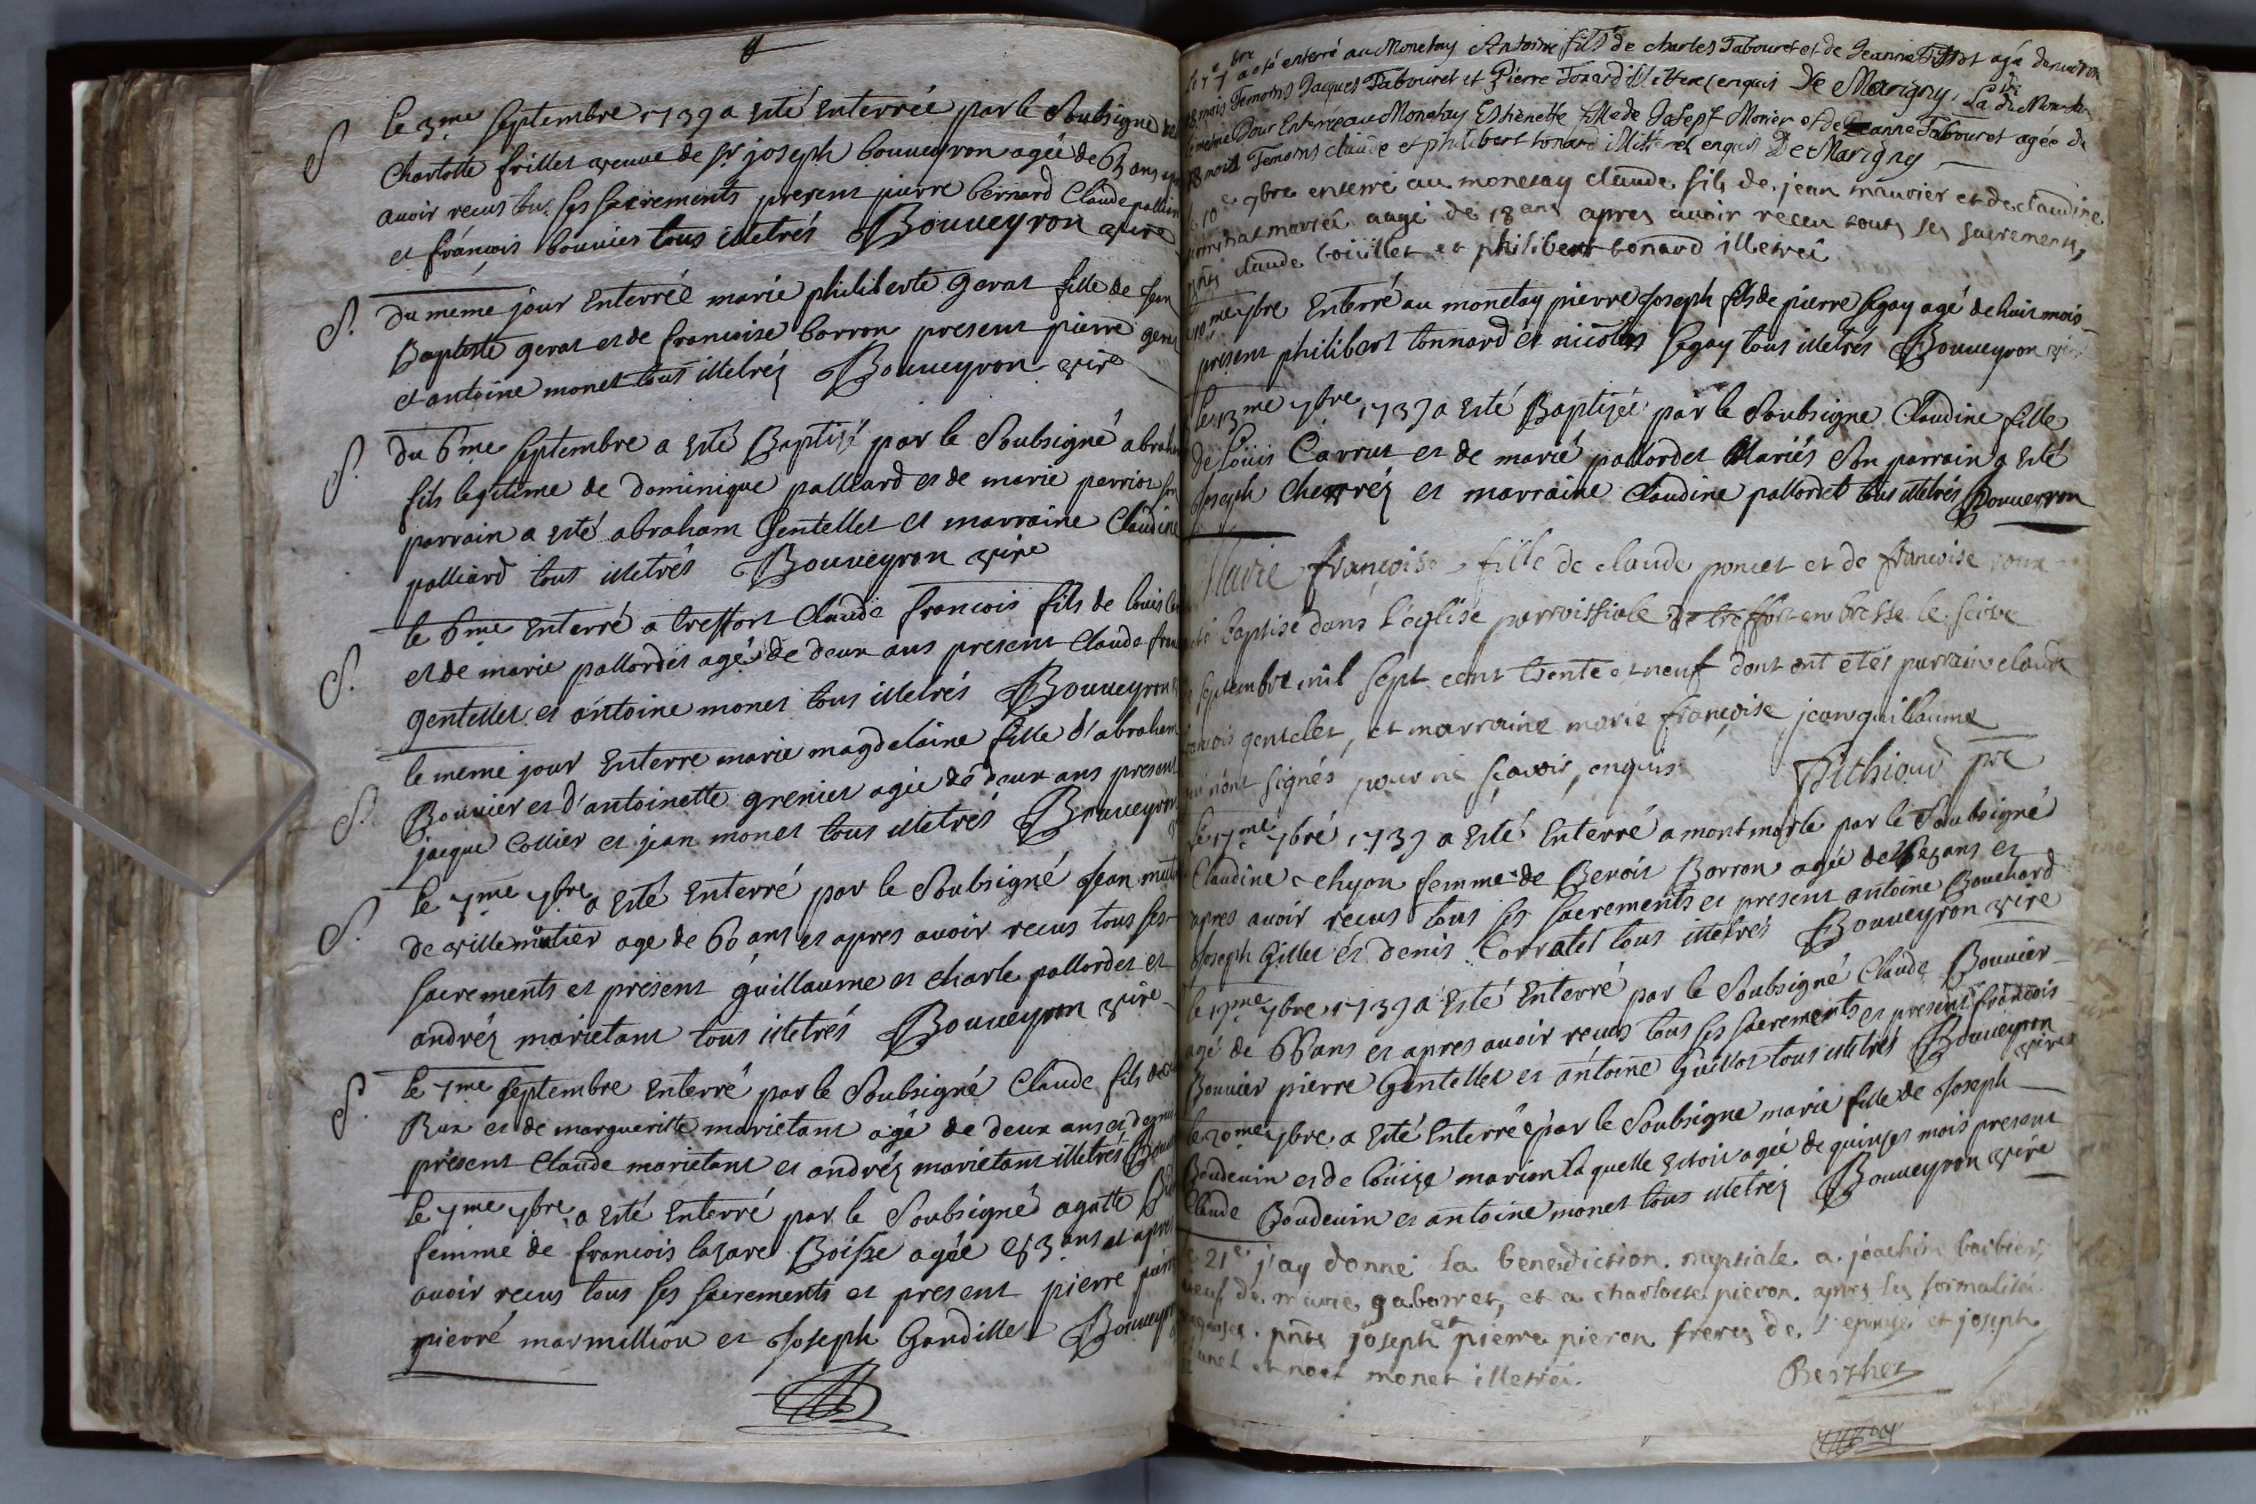 Le 3me Septembre 1739 a esté enterrée par le Soubsigné
Charlotte frillet veuve de Sr joseph bouveyron agée de 63 ans
avoir recus tous ses sacrements present pierre bernard Claude
et françois bouvier tous illetrés Bouveyron vire
du meme jour enterrée marie philiberte gerat fille de jean
Baptiste gerat et de francoise borron present pierre
et antoine monet tous illetrés Bouveyron vire
du 6me Septembre a esté Baptisé par le Soubsigné
fils legitime de dominique palliard et de marie perrier son
parrain a esté abraham Gentellet et marraine Claudine
palliard tous illetrés Bouveyron vire
le 6me enterré a treffort Claude francois fils de louis
et de marie pallordet agé de deux ans present Claude
gentellet et antoine monet tous illetrés Bouveyron
le meme jour enterre marie magdelaine fille d'abraham
Bouvier et d'antoinette grenier agée de deux ans present
jacque Collier et jean monet tous illetrés Bouveyron
Le 7me 7bre a esté enterré par le Soubsigné Jean
de villemotier age de 60 ans et apres avoir recus tous ses
sacrements et present guillaume et charle pallordet et
andréz marietant tous illetrés Bouveyron vire
Le 7me Septembre enterré par le Soubsigné Claude fils de
Rux et de margueritte marietant agé de deux ans et
present Claude marietant et andréz marietant illetrés
Le 7me 7bre a esté enterré par le Soubsigné agatte
femme de francois lazare Boisse agée 53 ans et apres
avoir recus tous ses sacrements et present pierre
pierré marmillion et Joseph Gandillet Bouveyron
a été enterré au Monetay Antoine fils de charles Tabouret et de Jeanne agé
18 mois Temoins Jacques Tabouret et Pierre Tonard illitteréz enquis De Marigny
le même Jour Enterrée au Monetay Estienette fille de Josept Morier et de Jeanne Tabouret agée de
18 mois Temoins claude et philibert tonard enquis De Marigny
10e 7bre enterré au monetay claude fils de jean mauvier et de claudine
mariés aagé de 18 ans apres avoir receu touts ses sacrements,
pnts claude boüillet et philibert tonard illetreé
10me 7bre Enterré au monetay pierre Joseph fils de pierre Segay agé de huit mois
present philibert tonnard et nicolas Segay tous illetrés Bouveyron
Le 13me 7bre 1739 a esté Baptisée par le Soubsigné Claudine fille
de Louis Carrut et de marie pallordet Mariés Son parrain a esté
Joseph Cherréz et marraine Claudine pallordet tous illetrés Bouveyron
Marie françoise fille de claude poncet et de francoise roux
été baptisé dans l'église parroissiale de treffort en bresse le seize
septembre mil sept cent trente et neuf dont ont etés parrain claude
francois gentelet, et marraine marie françoise jeanguillaume
qui n'ont signés pour ne sçavoir, enquis Pithioud pre
Le 17me 7bre 1739 a esté enterré a montmorle par le Soubsigné
Claudine chyon femme de Benoit Borron agée de ans et
apres avoir recus tous ses sacrements et present antoine Bouchard
Joseph Gillet et denis Corratel tous illetrés Bouveyron vire
le 17me 7bre 1739 a esté enterré par le Soubsigné Claude Bouvier
agé de 66 ans et apres avoir recus tous ses sacrements et present francois
Bouvier pierre Gentellet et antoine Guillot tous illetrés Bouveyron
vire
le 20me 7bre a esté enterrée par le Soubsigné marie fille de Joseph
Boudeuin et de louize marion laquelle estoit agée de quinzes mois present
Claude Boudeuin et antoine monet tous illetréz Bouveyron vire
21e j'ay donné la benediction nuptiale a joachim barbier,
veuf de marie gaborret, et a charlotte pieron apres les formalités
requises. pnts joseph et pierre pieron freres de l'epouse et joseph
et noel monet illetrés.
Berthet